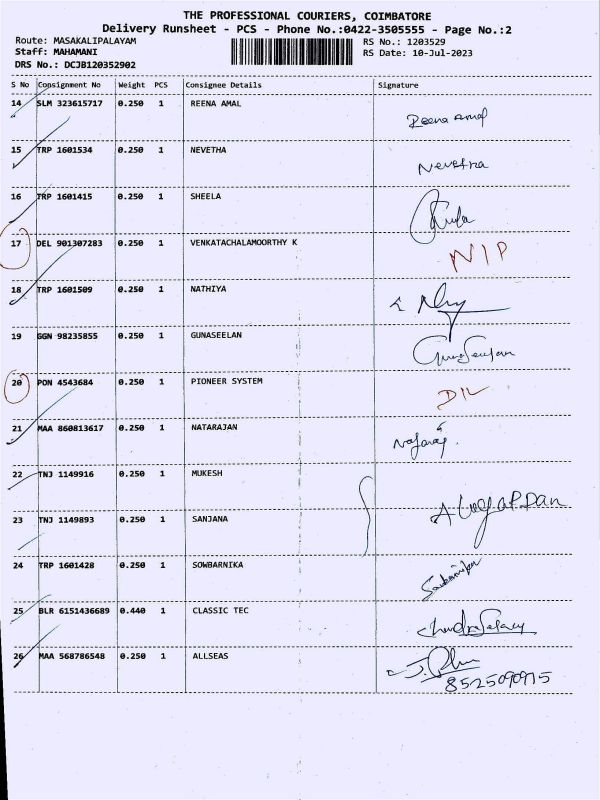 THE PROFESSIONAL COURIERS, COIMBATORE
Delivery Runsheet - PCS - Phone No.:0422-3505555 - Page No.:2
Route: MASAKALIPALAYAM RS No.: 1203529
Staff: MAHAMANI RS Date: 10-Jul-2023
DRS No.: DCJB120352902
S No Consignment No Weight PCS Consignee Details Signature
14 SLM 323615717 0.250 1 REENA AMAL Reena Amal
15 TRP 1601534 0.250 1 NEVETHA Nevetha
16 TRP 1601415 0.250 1 SHEELA
17 DEL 901307283 0.250 1 VENKATACHALAMOORTHY K NIP
18 TRP 1601509 0.250 1 NATHIYA
19 GGN 98235855 0.250 1 GUNASEELAN Gunaseelan
20 PON 4543684 0.250 1 PIONEER SYSTEM DIL
21 MAA 860813617 0.250 1 NATARAJAN
22 TNJ 1149916 0.250 1 MUKESH
23 TNJ 1149893 0.250 1 SANJANA
24 TRP 1601428 0.250 1 SOWBARNIKA
25 BLR 6151436689 0.440 1 CLASSIC TEC
26 MAA 568786548 0.250 1 ALLSEAS